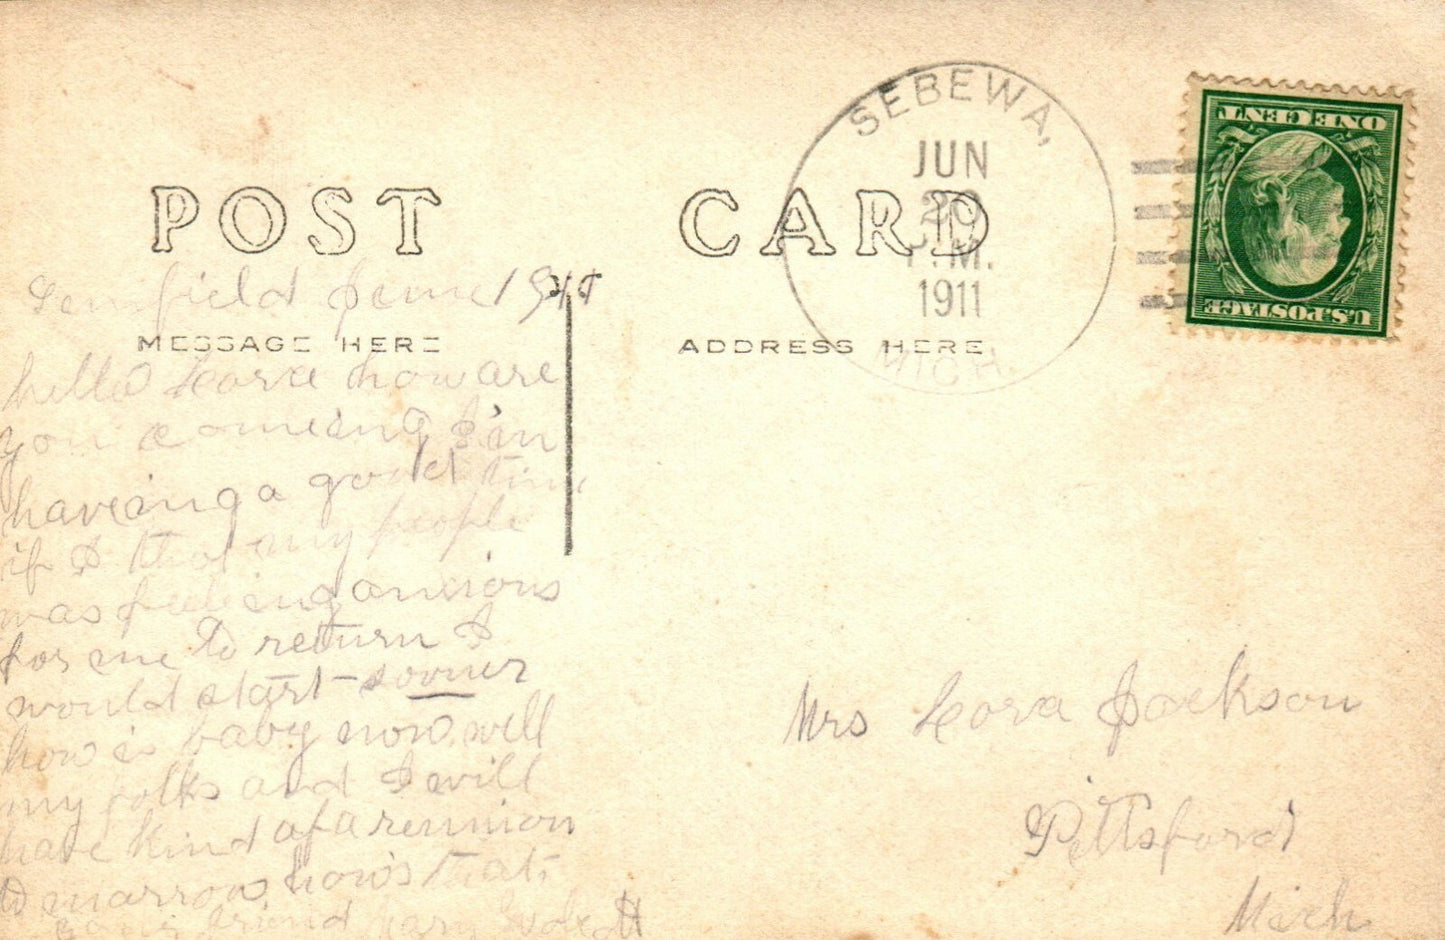 POST CARD
SEBEWA,
JUN
20
P.M.
1911
MICH.
ONE CENT
U.S. POSTAGE
June 1911
MESSAGE HERE
ADDRESS HERE
hello Lora how are
you comeing I'm
haveing a good time
if I that my people
was feeleing anxious
for me to return I
would start sooner
how is baby now well
my folks and I will
have kind of a reunion
to marrow how's that
your friend
Mrs Lora Jackson
Pittsford
Mich